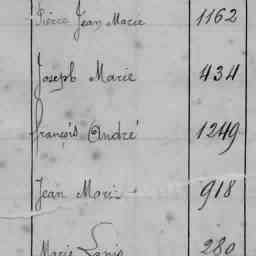 Pierre Jean Marie 1162
Joseph Marie 434
François André 1249
Jean Marie 918
Marie 280